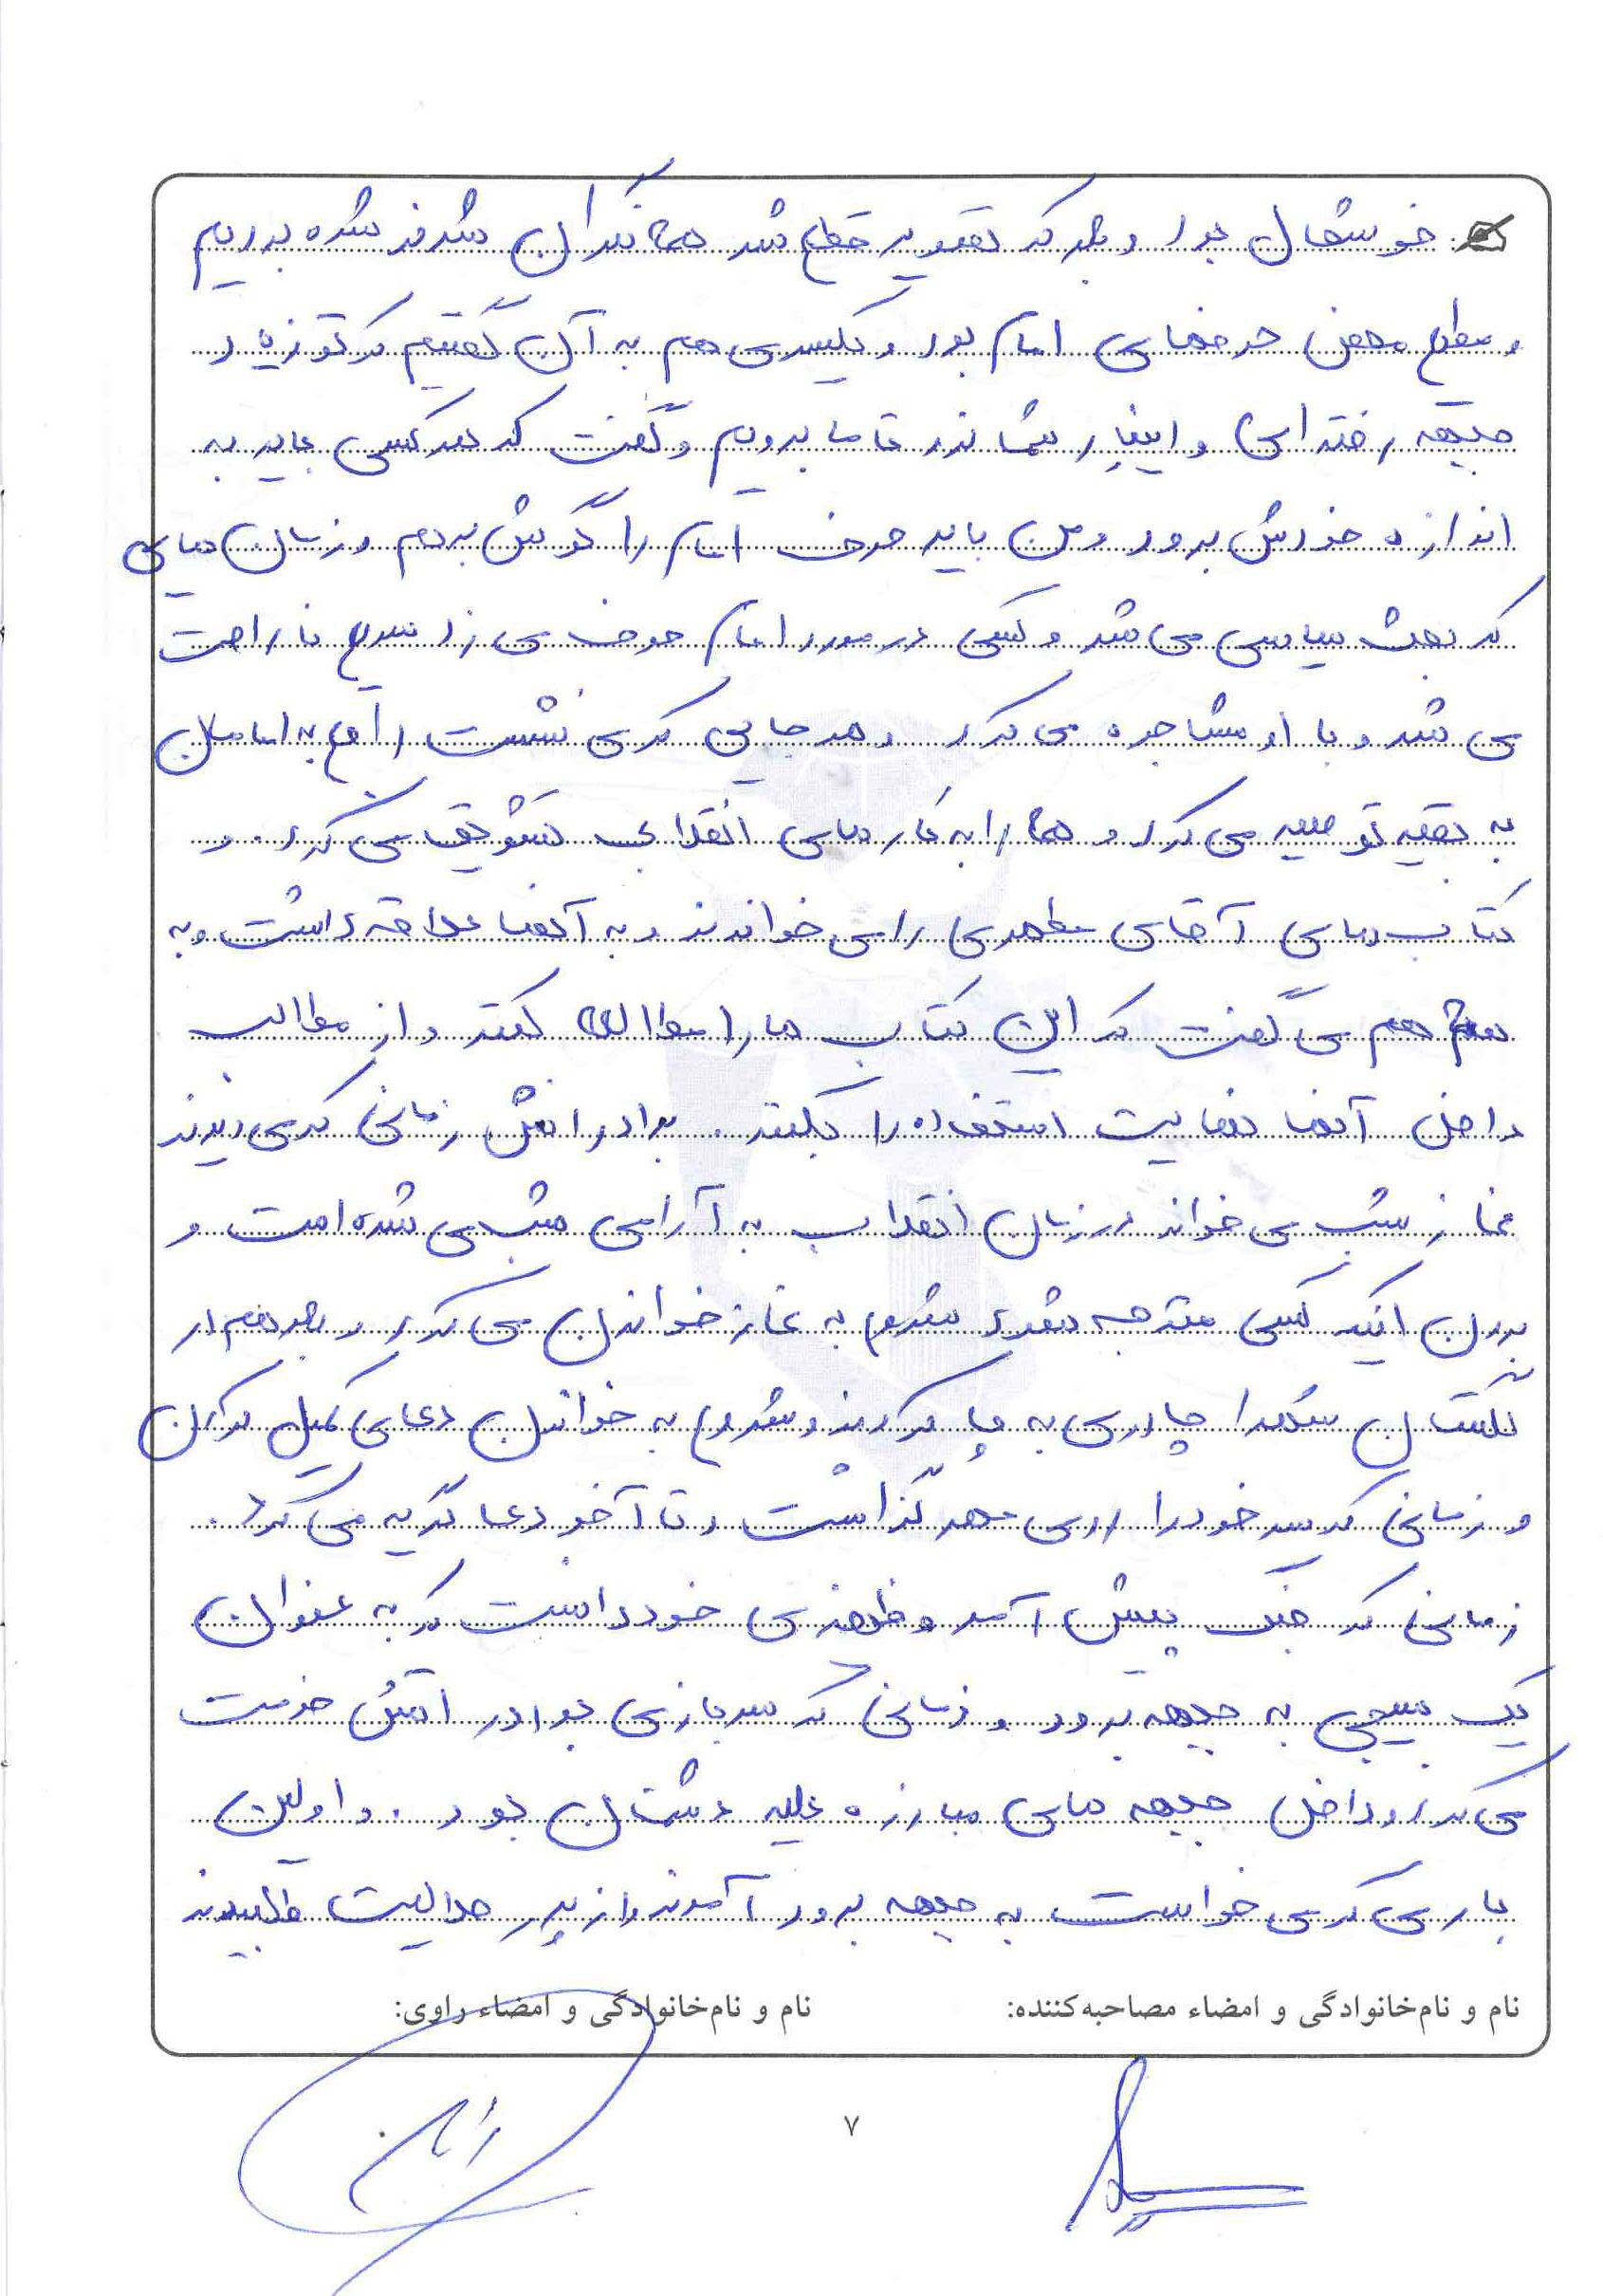 خوشحال بود و بعد که تصویر قطع شد همه نگران شدند شده بودیم
و مطیع محض حرفهای امام بود و یکسری هم به آن گفتیم که تو زیاد
جبهه رفته ای و اینبار شما نرو تا ما برویم و گفت که هر کسی باید به
اندازه خودش برود و من باید حرف امام را گوش بدهم و زمان هایی
که بحث سیاسی می شد و کسی در مورد امام حرف می زد سریع ناراحت
می شد و با او مشاجره می کرد و هر جایی که می نشست راجع به امامان
به بقیه توصیه می کرد و همه را به کارهای انقلاب تشویق می کرد. و
کتاب های آقای مطهری را می خواندند و به آنها علاقه داشت و به
هم می گفت که این کتاب ها را مطالعه کنند و از مطالب
داخل آنها نهایت استفاده را بکنند. برادرانش زمانی که می دیدند
نماز شب می خواند در زمان انقلاب به آرامی می شده است و
بدون اینکه کسی متوجه شود شروع به نماز خواندن می کرد و بعد هم در
گلستان شهدا چادری به پا کردند و شروع به خواندن دعای کمیل کردن
و زمانی که سر خود را روی مهر گذاشت و تا آخر دعا گریه می کرد.
زمانی که جنگ پیش آمد وظیفه ی خود دانست که به عنوان
یک بسیجی به جبهه برود و زمانی که سربازی بود در ارتش خدمت
می کرد و داخل جبهه های مبارزه علیه دشمنان بود. و اولین
باری که می خواست به جبهه برود آمدند و از پدر حلالیت طلبیدند
نام و نام‌خانوادگی و امضاء مصاحبه‌کننده: نام و نام‌خانوادگی و امضاء راوی:
۷